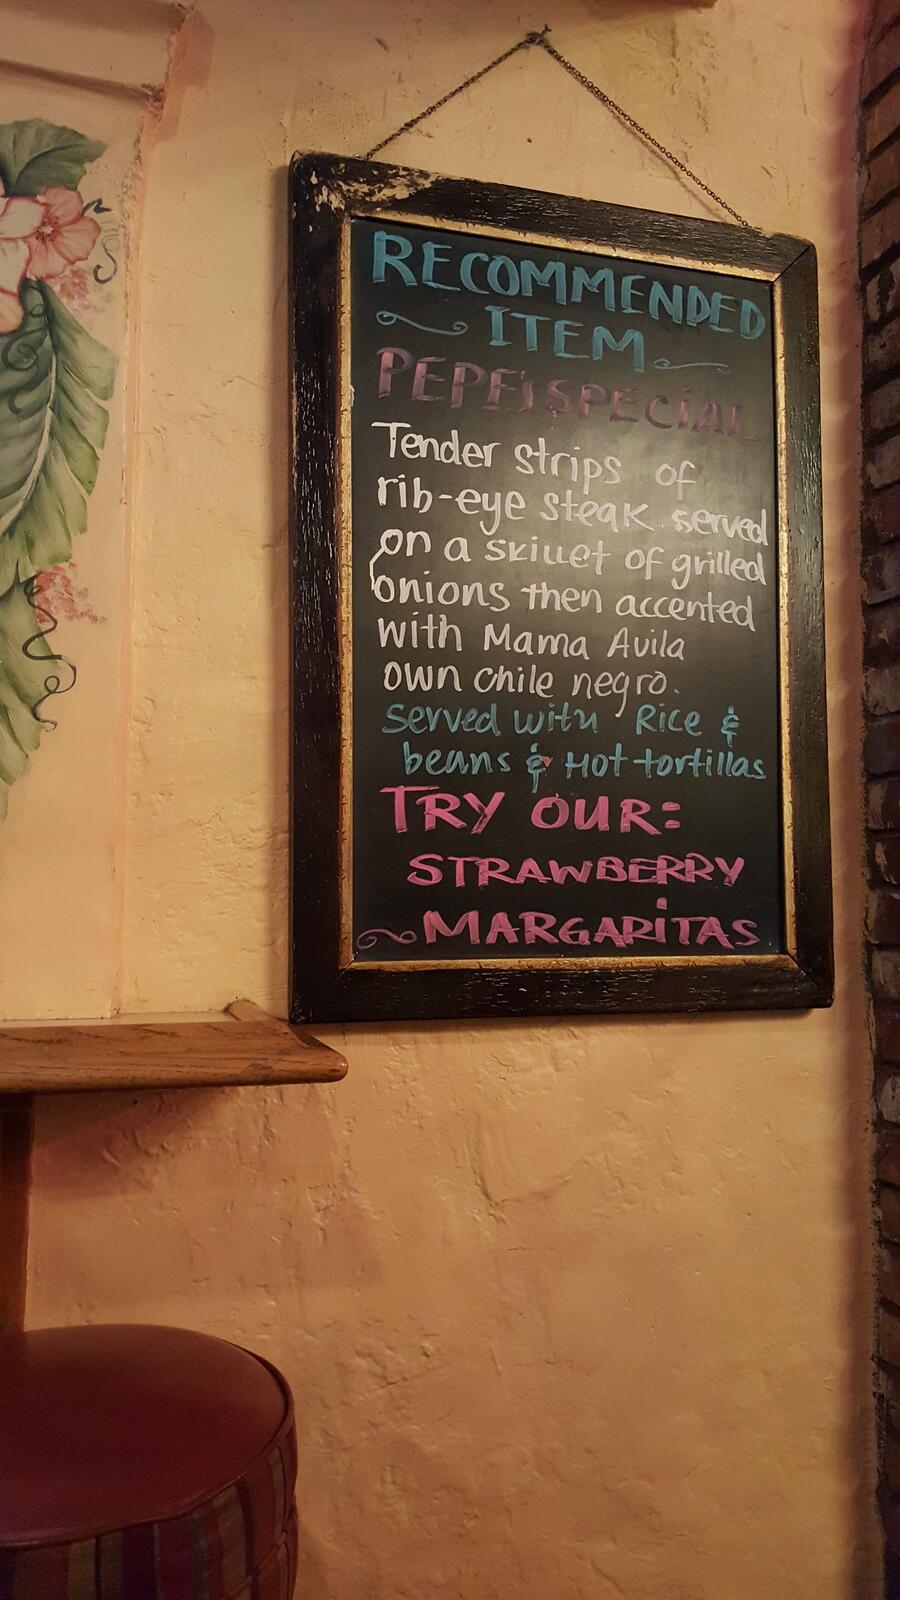 RECOMMENDED
ITEM
PEPE'S SPECIAL
Tender strips of
rib-eye steak served
on a skillet of grilled
onions then accented
with Mama Avila
own chile negro.
Served with Rice &
beans & Hot tortillas
TRY OUR:
STRAWBERRY
MARGARITAS